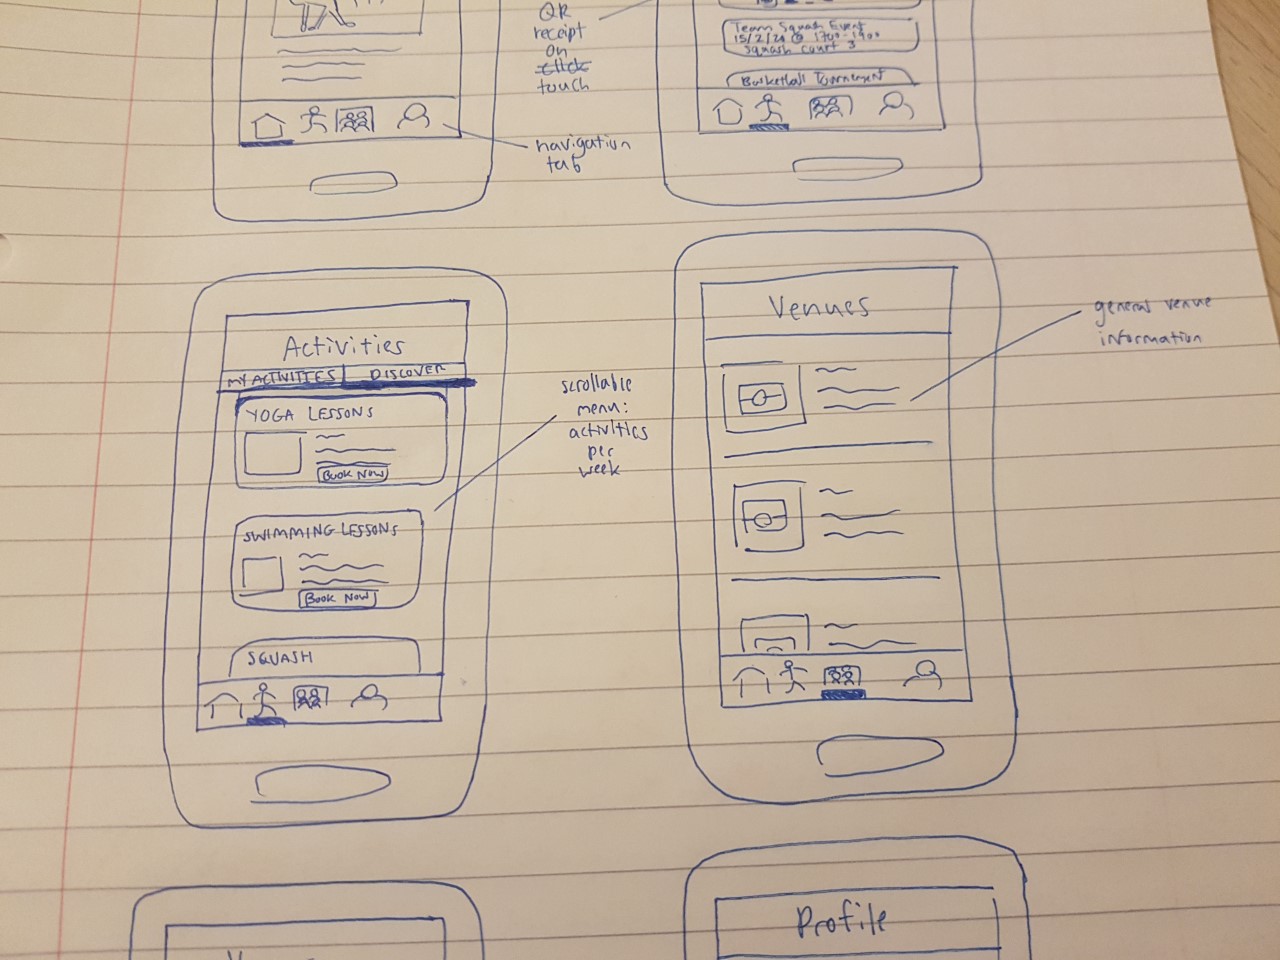 QR
receipt
on
click
touch
Team Squash Event
15/2/20 @ 1700-1900
Squash court 3
Basketball Tournement
navigation
tab
Activities
MY ACTIVITIES
DISCOVER
YOGA LESSONS
BOOK NOW
SWIMMING LESSONS
BOOK NOW
SQUASH
scrollable
menu:
activities
per
week
Venues
general venue
information
Profile